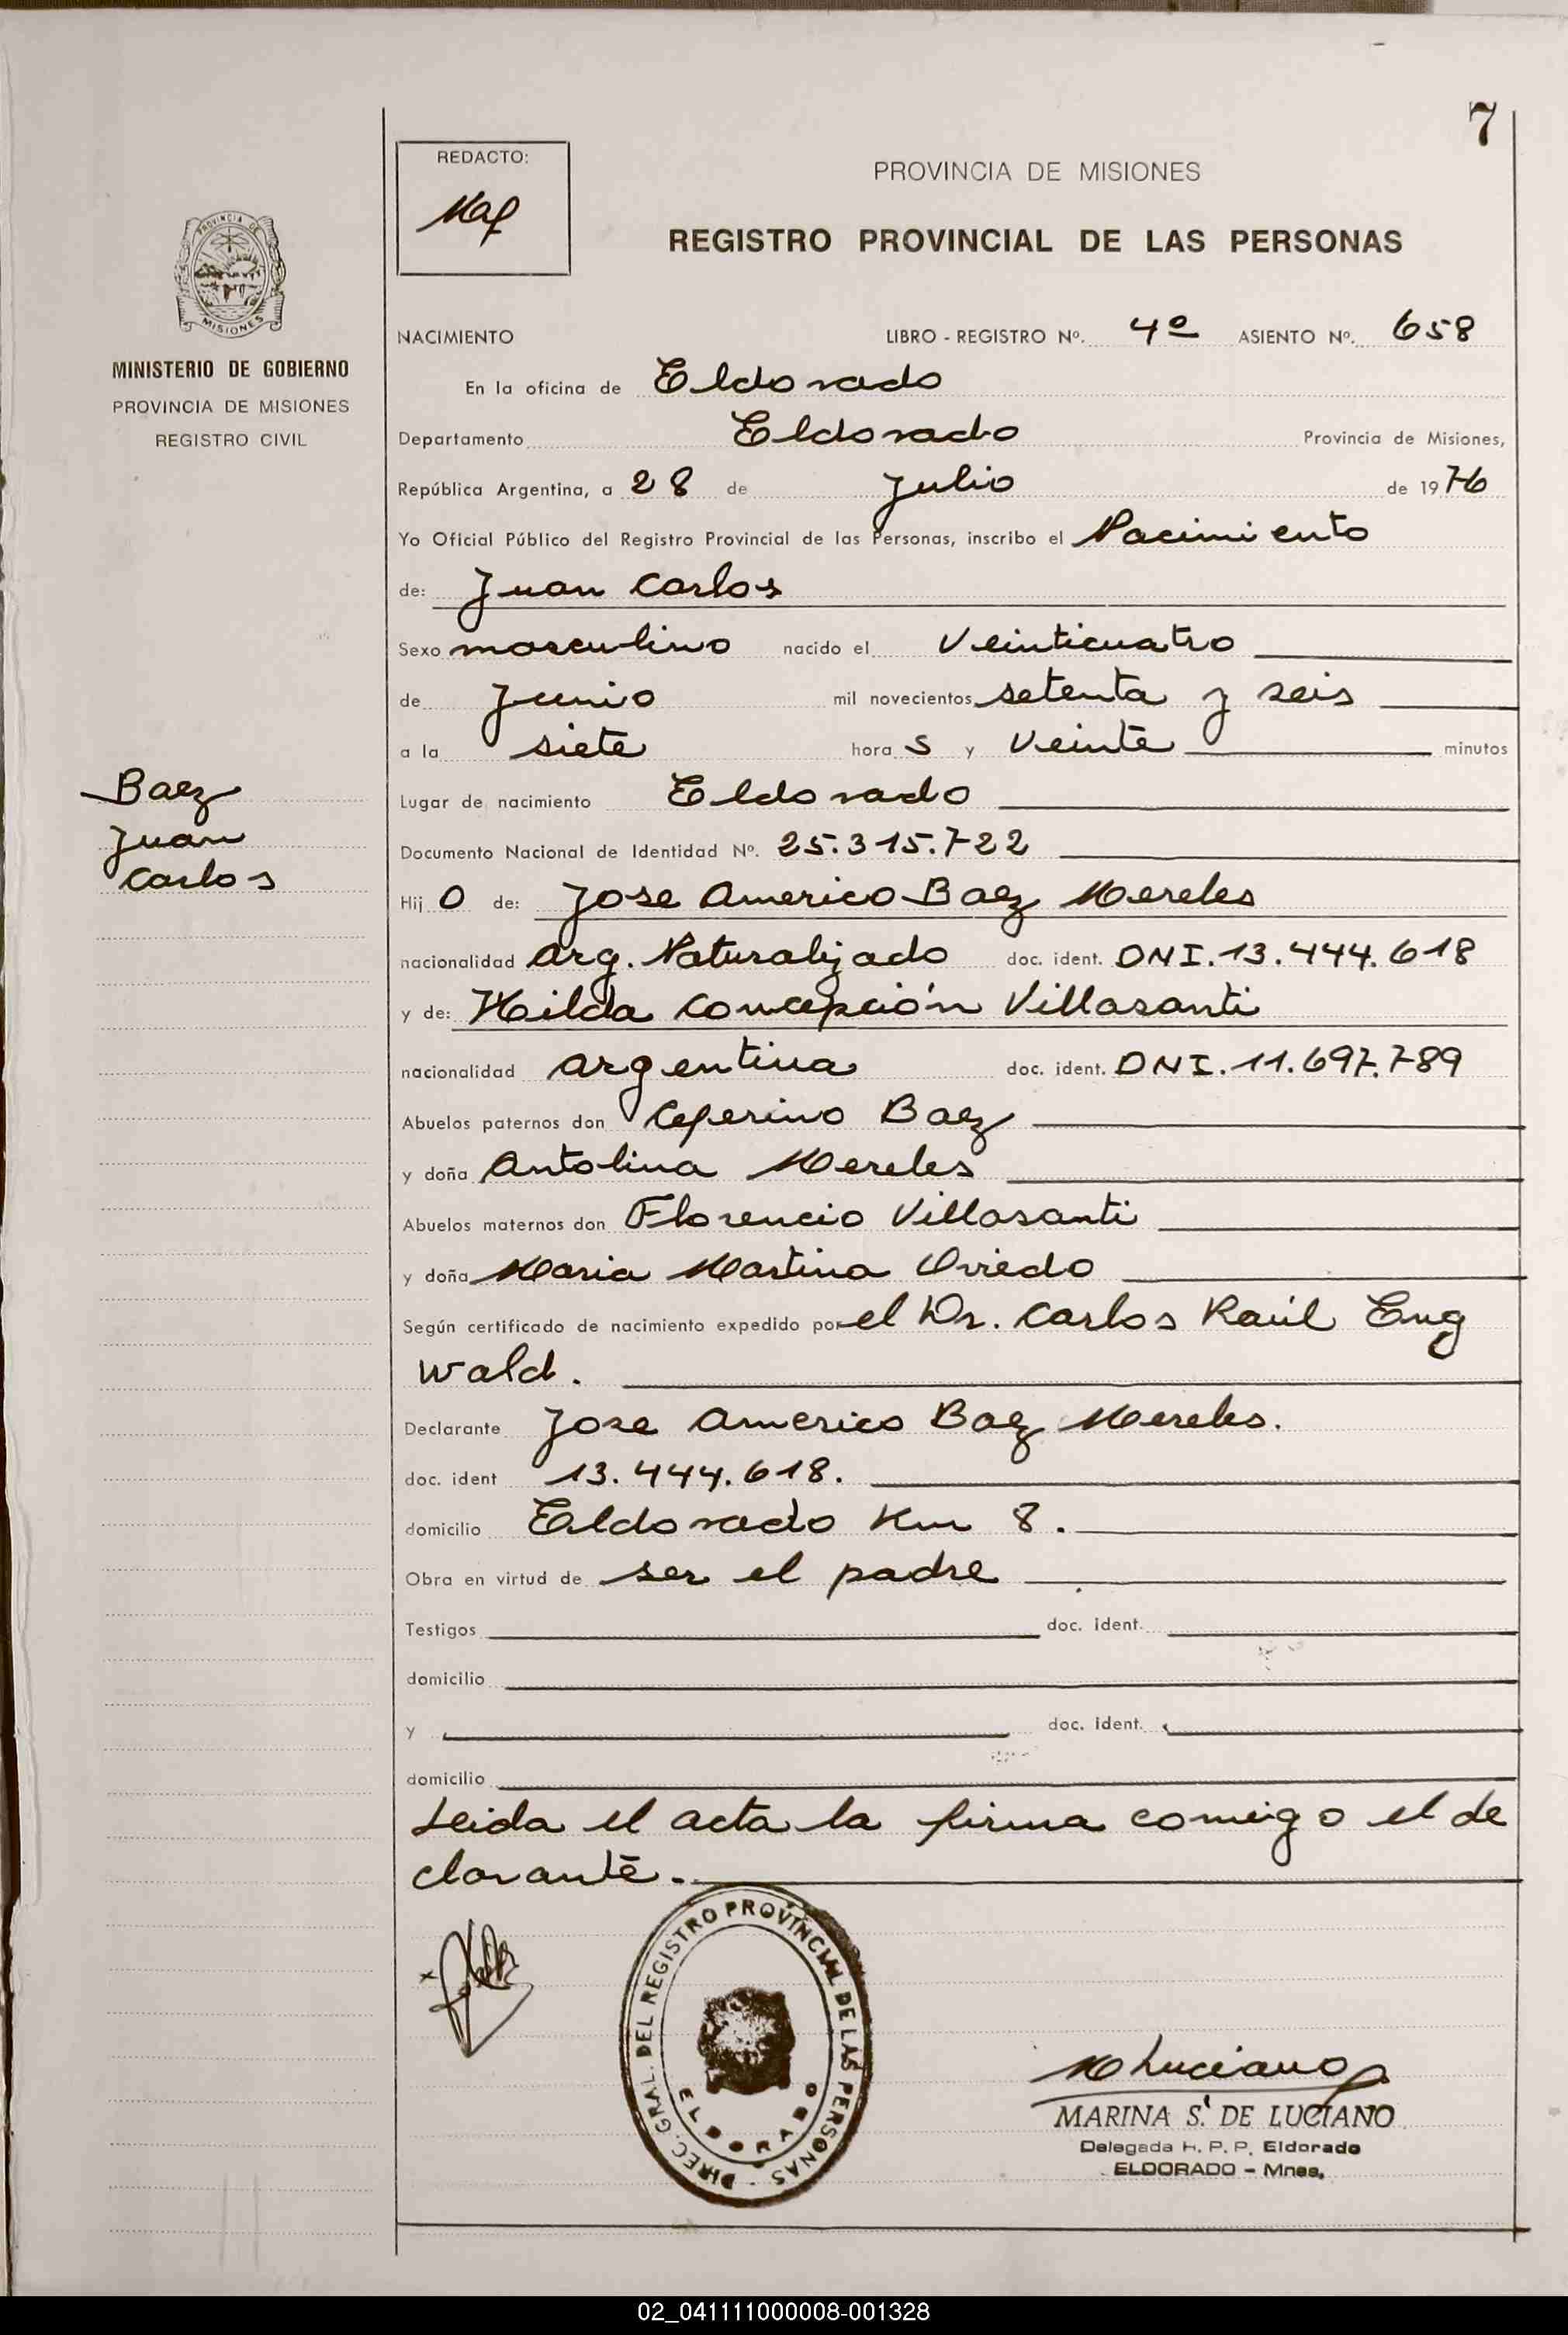 7
REDACTO:
PROVINCIA DE MISIONES
REGISTRO PROVINCIAL DE LAS PERSONAS
PROVINCIA DE
MISIONES
MINISTERIO DE GOBIERNO
PROVINCIA DE MISIONES
REGISTRO CIVIL
NACIMIENTO LIBRO - REGISTRO Nº. 4º ASIENTO Nº. 658
En la oficina de Eldorado
Departamento Eldorado Provincia de Misiones,
República Argentina, a 28 de Julio de 1976
Yo Oficial Público del Registro Provincial de las Personas, inscribo el Nacimiento
de: Juan Carlos
Sexo masculino nacido el Veinticuatro
de Junio mil novecientos setenta y seis
a la siete hora s y Veinte minutos
Baez
Juan
Carlos
Lugar de nacimiento Eldorado
Documento Nacional de Identidad Nº. 25.315.722
Hij o de: Jose Americo Baez Mereles
nacionalidad Arg. Naturalizado doc. ident. DNI. 13.444.618
y de: Hilda Concepción Villasanti
nacionalidad argentina doc. ident. DNI. 11.697.789
Abuelos paternos don Ceferino Baez
y doña Antolina Mereles
Abuelos maternos don Florencio Villasanti
y doña Maria Martina Oviedo
Según certificado de nacimiento expedido por el Dr. Carlos Raúl Eng
wald.
Declarante Jose Americo Baez Mereles.
doc. ident 13.444.618.
domicilio Eldorado Km 8.
Obra en virtud de ser el padre
Testigos doc. ident.
domicilio
y doc. ident.
domicilio
Leida el acta la firma comigo el de
clarante.
DIREC. GRAL. DEL REGISTRO PROVINCIAL DE LAS PERSONAS -
ELDORADO
M Luciano
MARINA S. DE LUCIANO
Delegada R. P. P. Eldorado
ELDORADO - Mnes.
02_041111000008-001328